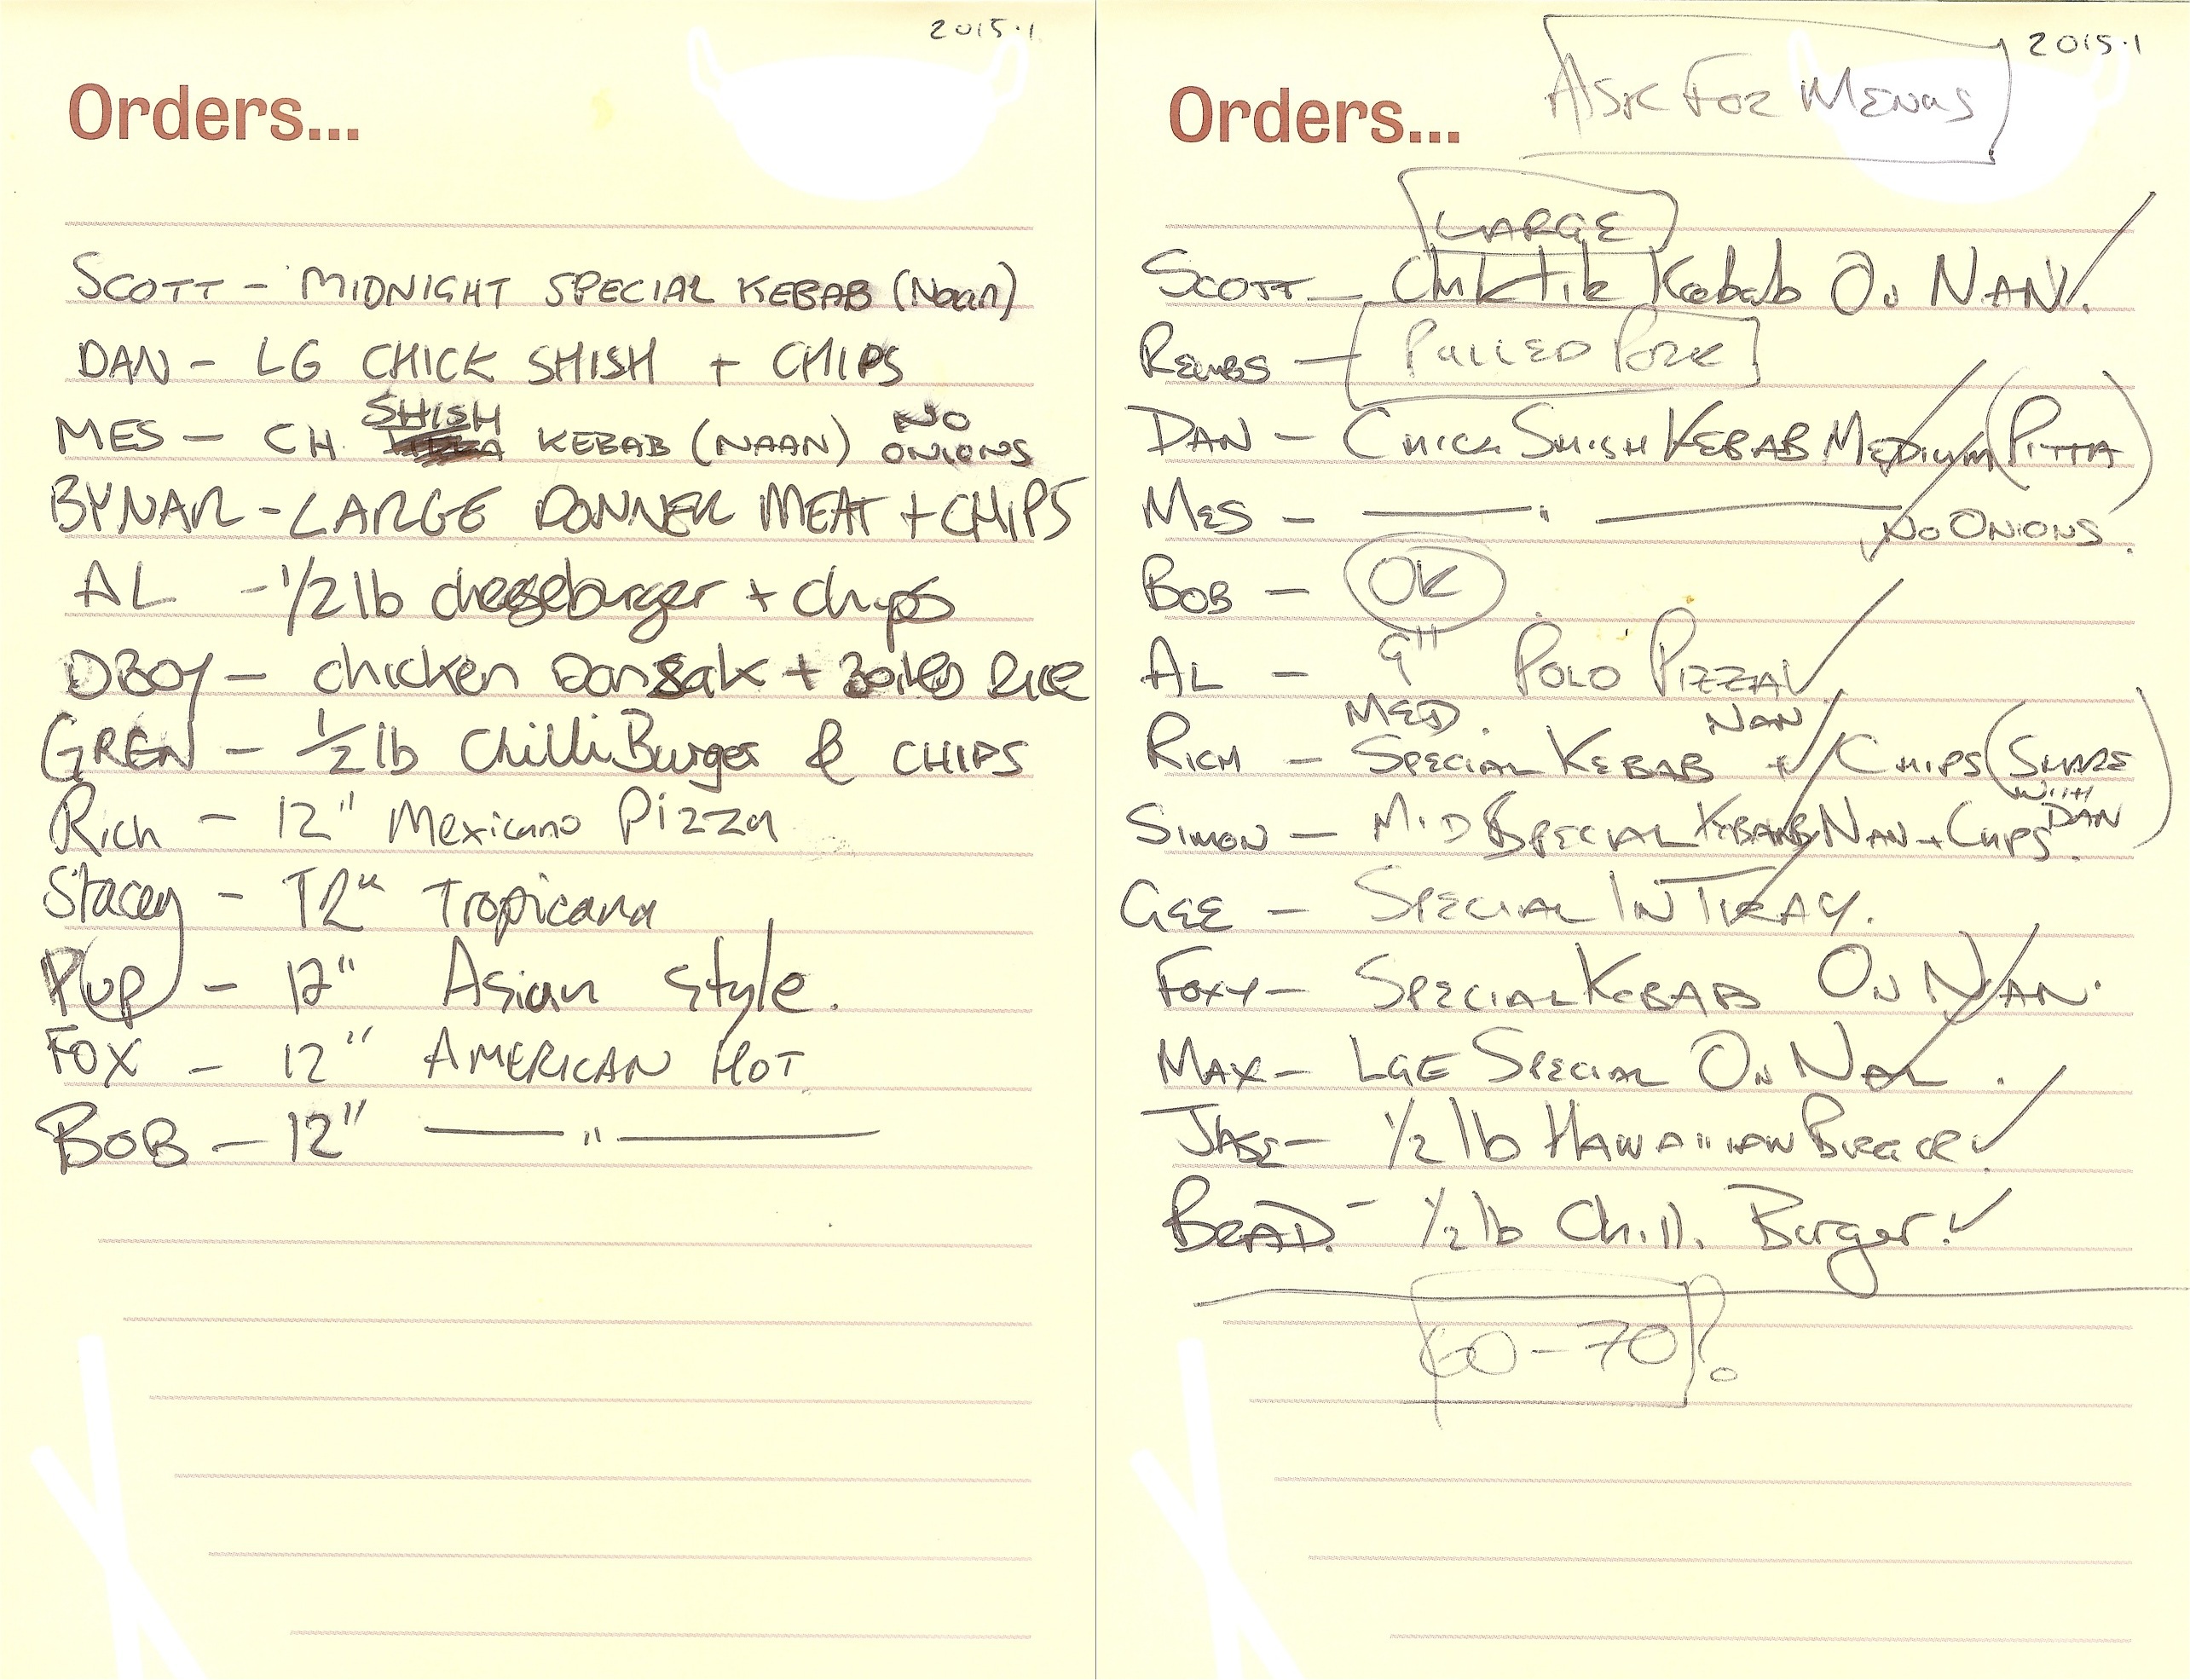 2015.1
Orders...
SCOTT - MIDNIGHT SPECIAL KEBAB (Naan)
DAN - LG CHICK SHISH + CHIPS
MES - CH. SHISH KEBAB (NAAN) NO ONIONS
BYNAR - LARGE DONNER MEAT + CHIPS
AL - 1/2 lb cheeseburger + chips
DBOY - chicken Dansak + Boiled Rice
GREN - 1/2 lb Chilli Burger & CHIPS
Rich - 12" Mexicano Pizza
Stacey - 12" Tropicana
Pup - 12" Asian Style.
FOX - 12" AMERICAN HOT
BOB - 12" — " —
2015.1
ASK FOR MENUS
Orders...
LARGE
SCOTT - Chk Tik Kebab On NAN.
REUBS - PULLED PORK
DAN - CHICK SHISH KEBAB MEDIUM (PITTA)
MES - — " — NO ONIONS.
BOB - OK
AL - 9" POLO PIZZA
MED. NAN
RICH - SPECIAL KEBAB + CHIPS (SHARE WITH DAN)
SIMON - MID SPECIAL KEBAB NAN + CHIPS.
GEE - SPECIAL IN TRAY.
FOXY - SPECIAL KEBAB ON NAN.
MAX - LGE SPECIAL ON NAN.
JASE - 1/2 lb HAWAIIAN BURGER
BRAD. - 1/2 lb Chilli Burger.
60-70